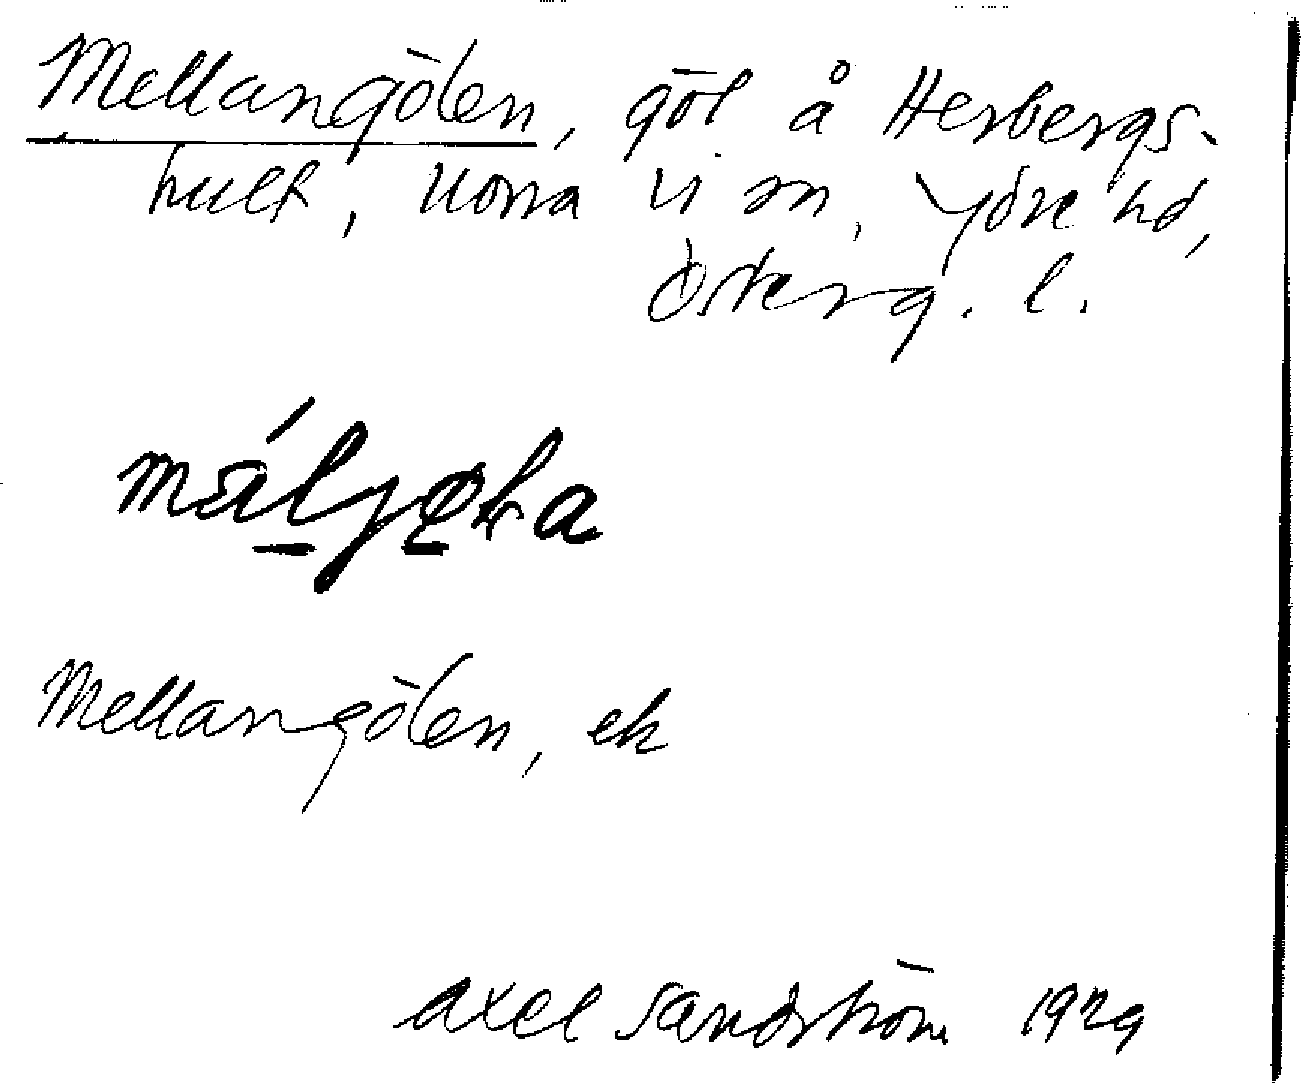 Mellangölen, göl å Herbergs-
hult, Norra Vi sn, Ydre hd,
Österg. l.
Mellangölen, ek
Axel Sandström 1929